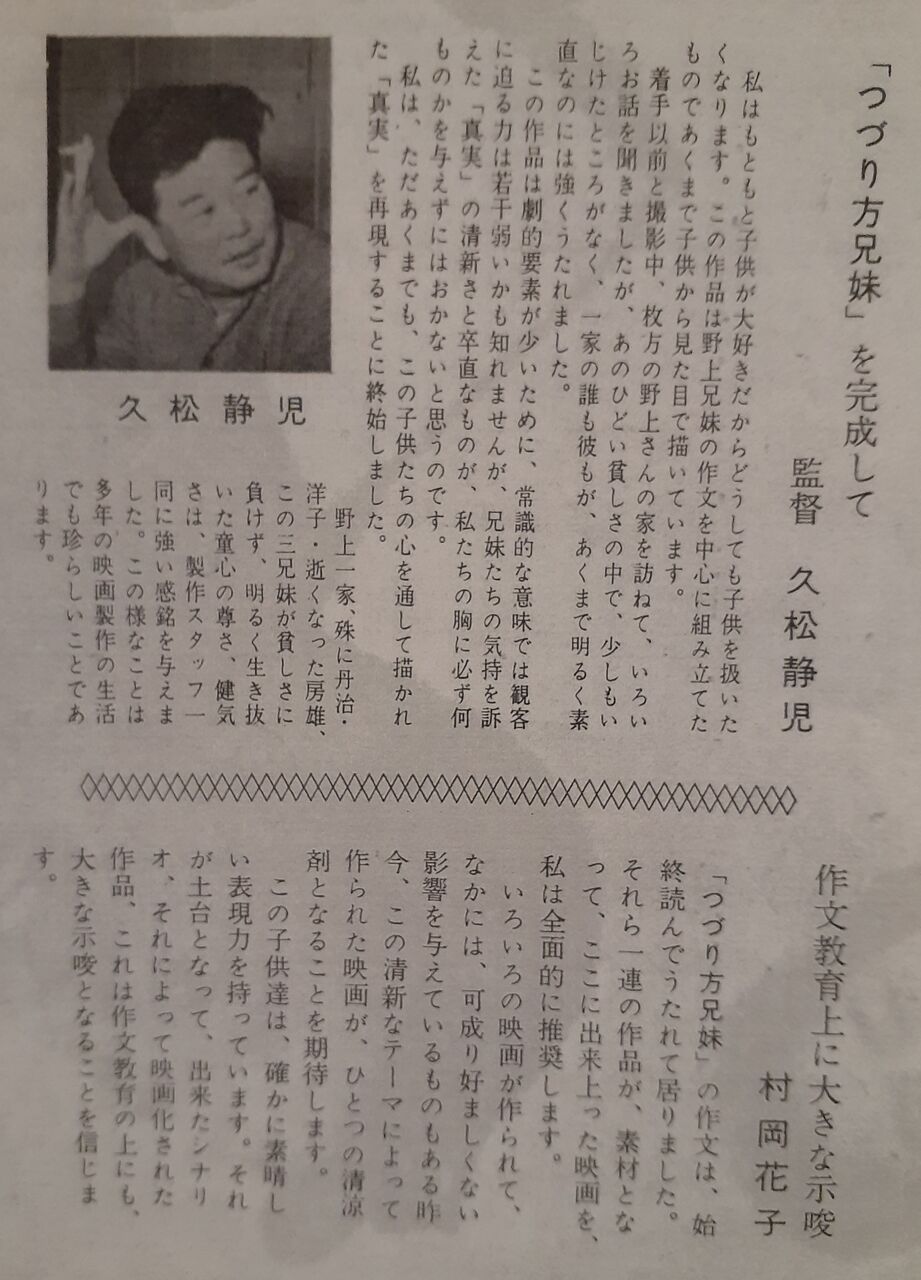 「つづり方兄妹」を完成して
監督 久松静児
私はもともと子供が大好きだからどうしても子供を扱いた
くなります。この作品は野上兄妹の作文を中心に組み立てた
ものであくまで子供から見た目で描いています。
着手以前と撮影中、枚方の野上さんの家を訪ねて、いろい
ろお話を聞きましたが、あのひどい貧しさの中で、少しもい
じけたところがなく、一家の誰も彼もが、あくまで明るく素
直なのには強くうたれました。
この作品は劇的要素が少いために、常識的な意味では観客
に迫る力は若干弱いかも知れませんが、兄妹たちの気持を訴
えた「真実」の清新さと卒直なものが、私たちの胸に必ず何
ものかを与えずにはおかないと思うのです。
私は、ただあくまでも、この子供たちの心を通して描かれ
た「真実」を再現することに終始しました。
野上一家、殊に丹治・
洋子・逝くなった房雄、
この三兄妹が貧しさに
負けず、明るく生き抜
いた童心の尊さ、健気
さは、製作スタッフ一
同に強い感銘を与えま
した。この様なことは
多年の映画製作の生活
でも珍らしいことであ
ります。
久松静児
作文教育上に大きな示唆
村岡花子
「つづり方兄妹」の作文は、始
終読んでうたれて居りました。
それら一連の作品が、素材とな
って、ここに出来上った映画を、
私は全面的に推奨します。
いろいろの映画が作られて、
なかには、可成り好ましくない
影響を与えているものもある昨
今、この清新なテーマによって
作られた映画が、ひとつの清涼
剤となることを期待します。
この子供達は、確かに素晴し
い表現力を持っています。それ
が土台となって、出来たシナリ
オ、それによって映画化された
作品、これは作文教育の上にも、
大きな示唆となることを信じま
す。